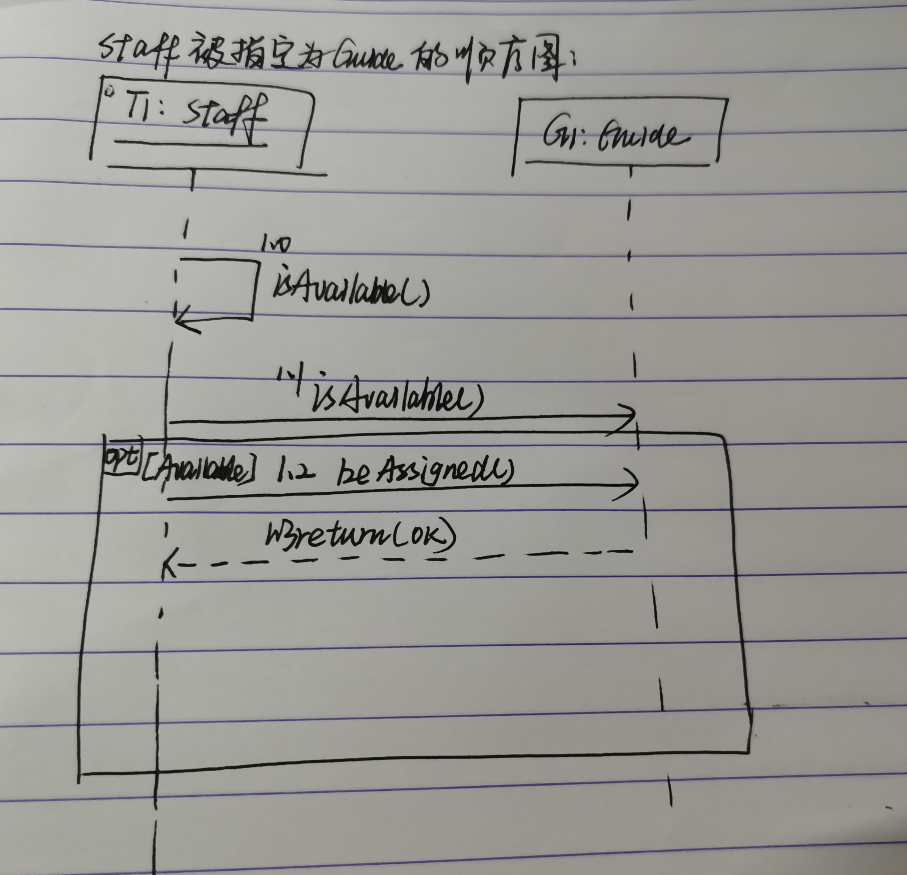 staff 被指定为Guide 的顺序图:
T1: staff
G1: Guide
1.0
isAvailable()
1.1 isAvailable()
opt [Available] 1.2 beAssigned()
1.3return(OK)